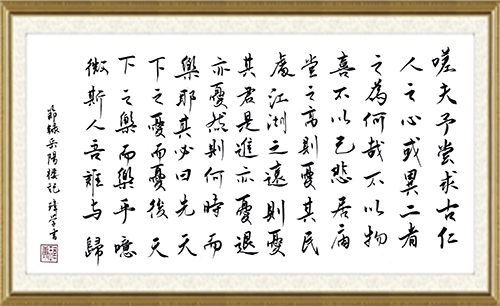 嗟夫予嘗求古仁
人之心或異二者
之為何哉不以物
喜不以己悲居庙
堂之高則憂其民
處江湖之遠則憂
其君是進亦憂退
亦憂然則何時而
樂耶其必曰先天
下之憂而憂後天
下之樂而樂乎噫
微斯人吾誰与歸
節錄岳陽樓記